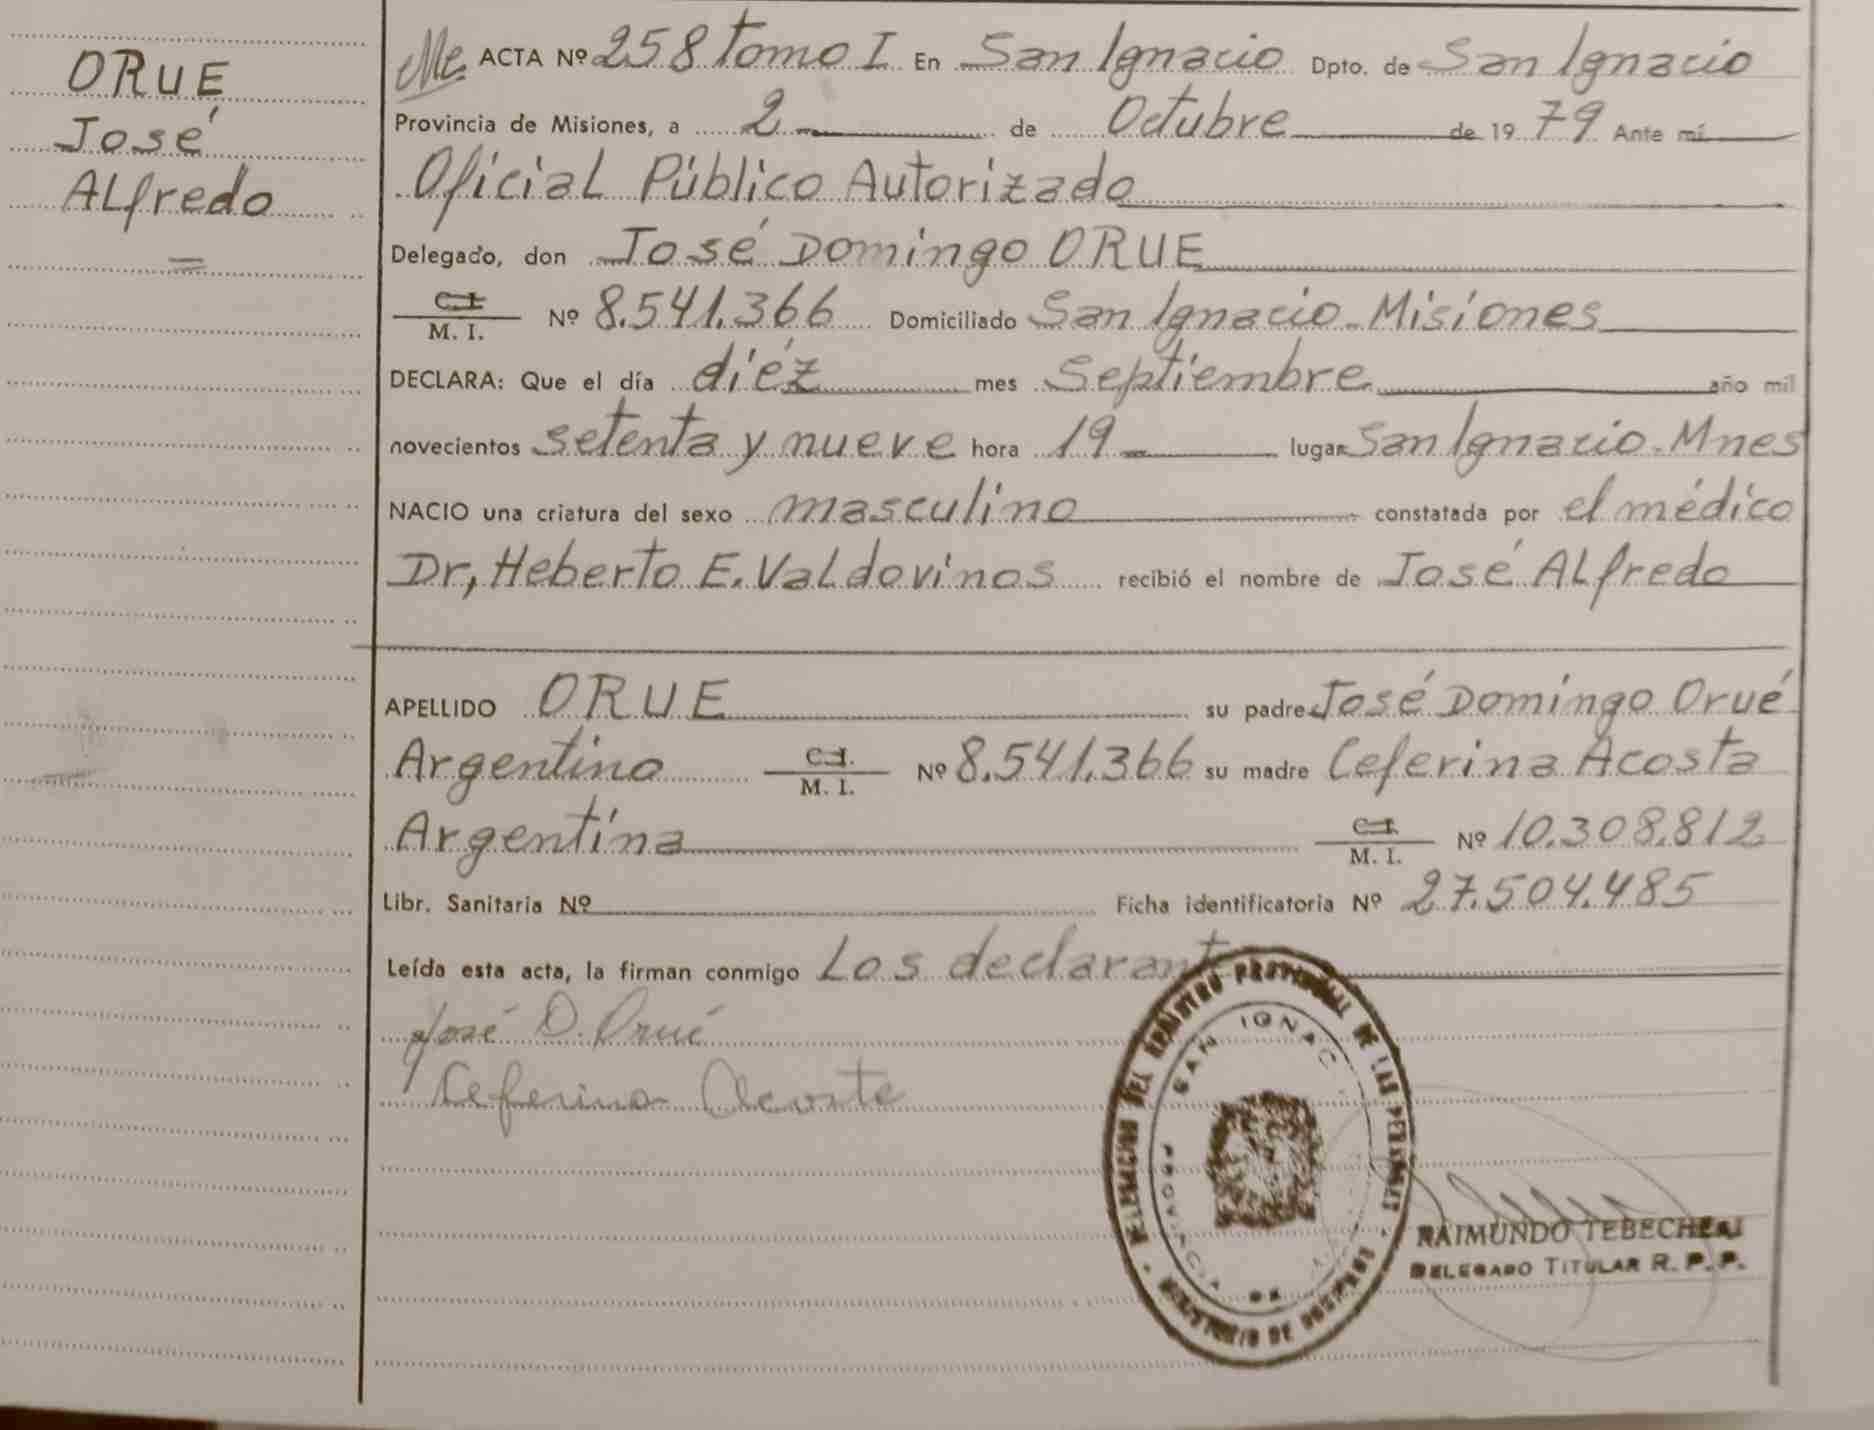 ORUE
José
ALfredo
ACTA Nº 258 Tomo I En San Ignacio Dpto. de San Ignacio
Provincia de Misiones, a 2 de Octubre de 1979 Ante mí
Oficial Público Autorizado
Delegado, don José Domingo ORUE
C.I.
M. I. Nº 8.541.366 Domiciliado San Ignacio - Misiones
DECLARA: Que el día diéz mes Septiembre año mil
novecientos setenta y nueve hora 19 lugar San Ignacio - Mnes
NACIO una criatura del sexo masculino constatada por el médico
Dr, Heberto E. Valdovinos recibió el nombre de José ALfredo
APELLIDO ORUE su padre José Domingo Orué
Argentino C.I. M. I. Nº 8.541.366 su madre Ceferina Acosta
Argentina C.I. M. I. Nº 10.308.812
Libr. Sanitaria Nº Ficha identificatoria Nº 27.504.485
Leída esta acta, la firman conmigo Los declarant
José D. Orué
Ceferina Acosta
DELEGACION DEL REGISTRO PROVINCIAL DE LAS PERSONAS
SAN IGNAC
PROVINCIA DE
MINISTERIO DE GOBIERNO
RAIMUNDO TEBECHERI
DELEGADO TITULAR R. P. P.